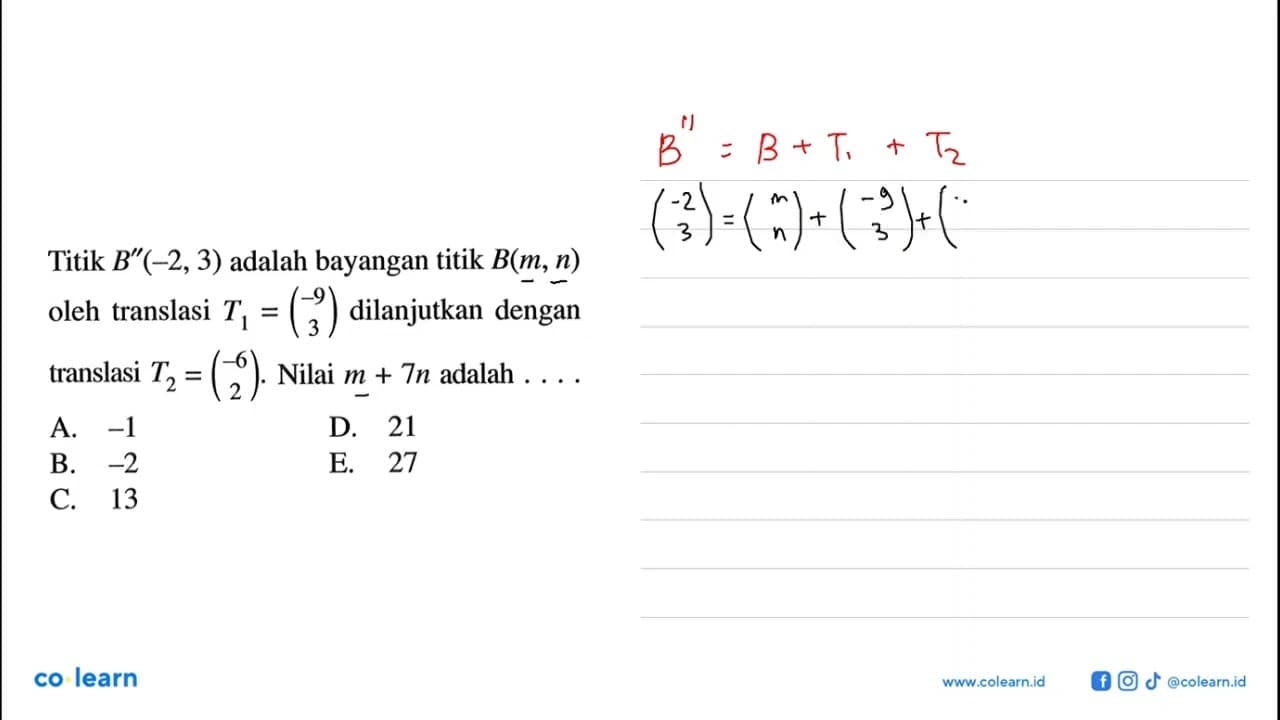 Titik B″(–2, 3) adalah bayangan titik B(m, n)
oleh translasi T₁ = (–9 3) dilanjutkan dengan
translasi T₂ = (–6 2). Nilai m + 7n adalah . . . .
A. –1
B. –2
C. 13
D. 21
E. 27
B″ = B + T₁ + T₂
(-2 3) = (m n) + (-9 3) + (
co learn
www.colearn.id
@colearn.id